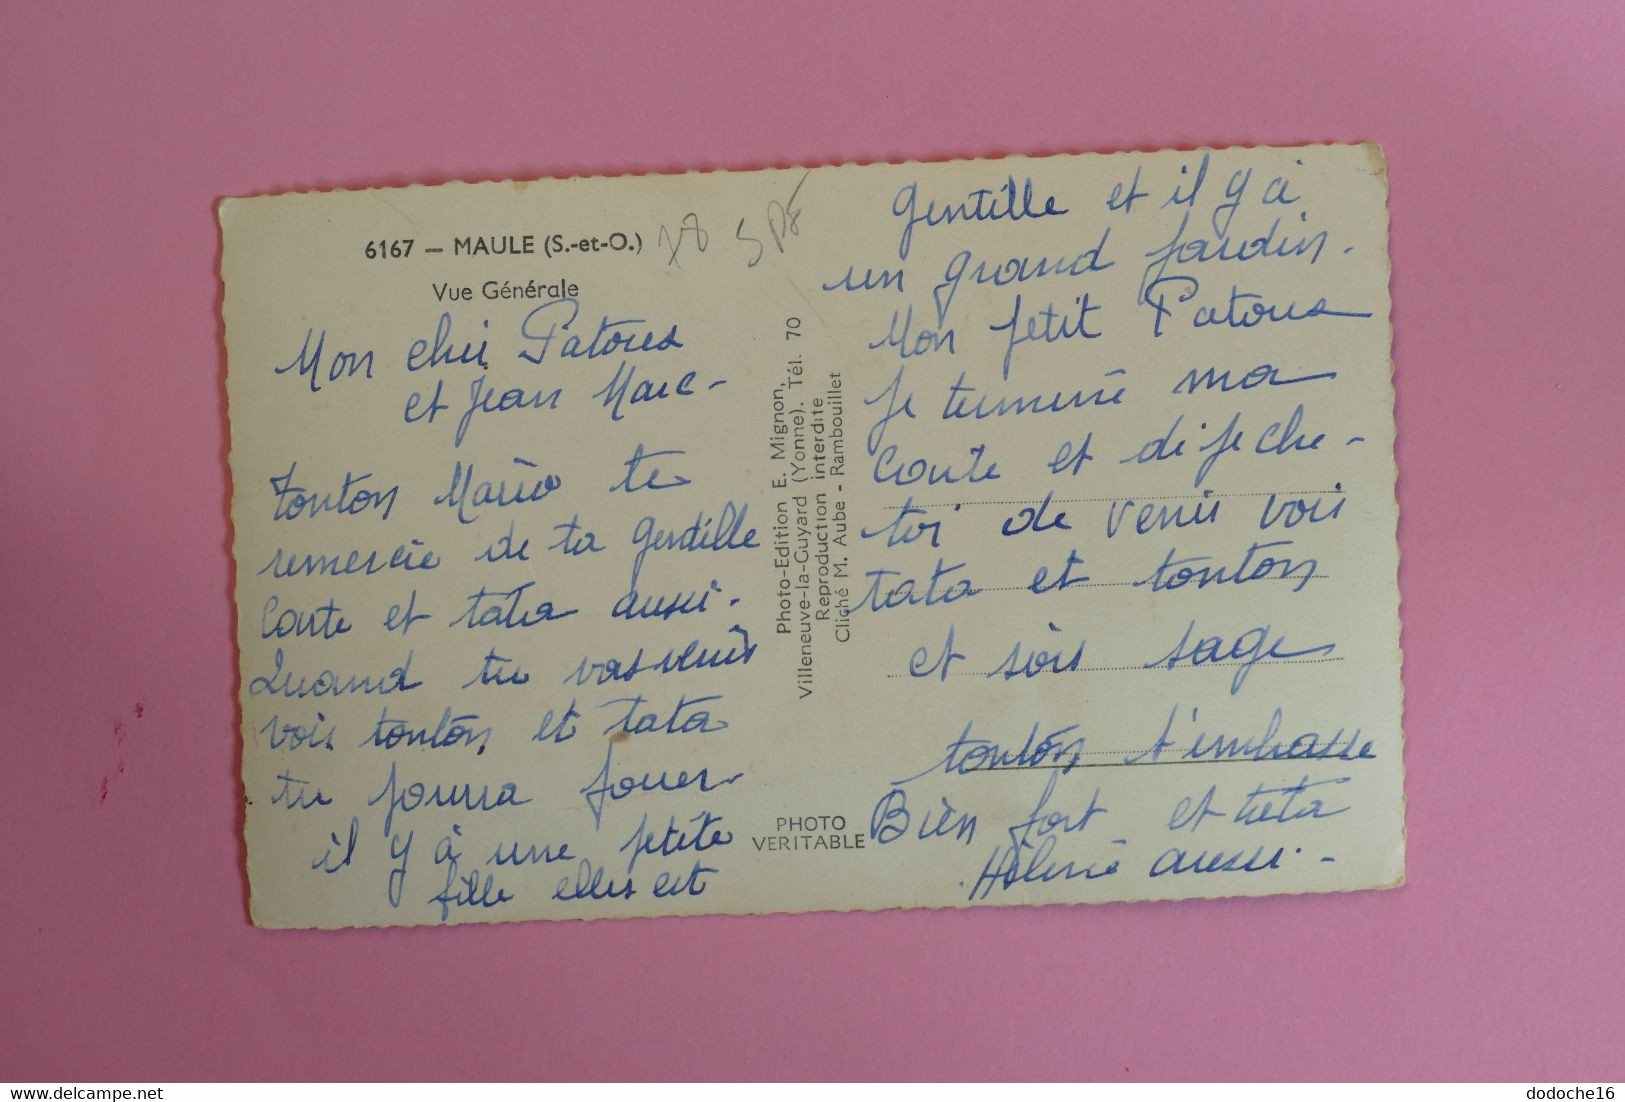 6167 — MAULE (S.-et-O.)
Vue Générale
78
Mon cher Patous
et Jean Marc -
tonton Mario te
remercie de ta gentille
Carte et tata aussi -
Quand tu vas venir
voir tonton et tata
tu pourra jouer -
il y à une petite
fille elles est
Photo-Edition E. Mignon,
Villeneuve-la-Guyard (Yonne). Tél. 70
Reproduction interdite
Cliché M. Aube - Rambouillet
PHOTO
VERITABLE
gentille et il y à
un grand jardin -
Mon petit Patous
je termine ma
Carte et
toi de venir voir
tata et tonton
et sois sage
tonton t'embrasse
Bien fort et tata
Hélène aussi -
www.delcampe.net
dodoche16